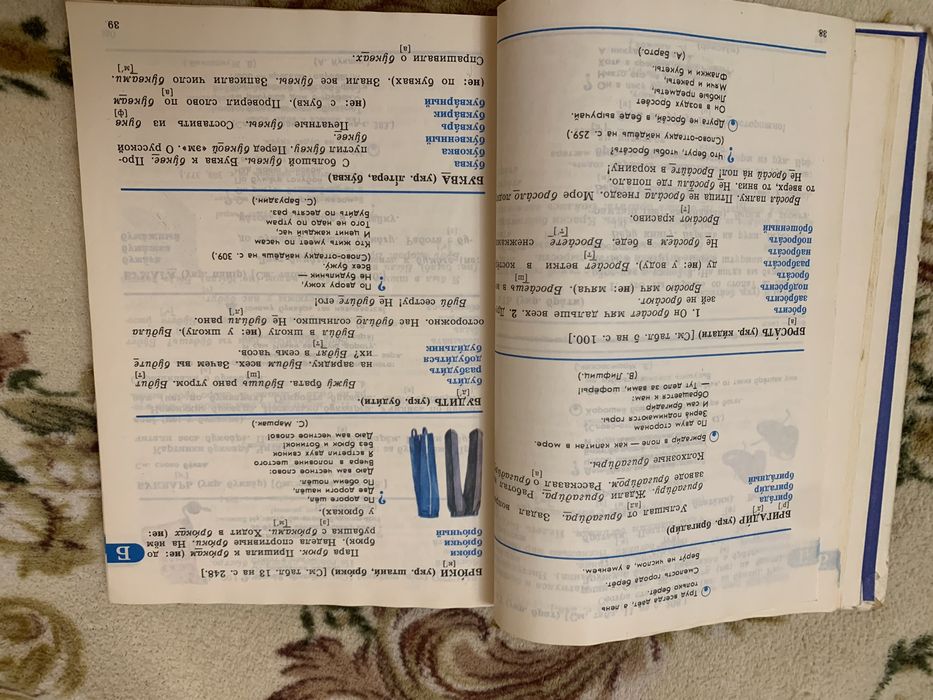 Труд всегда даёт, а лень
только берёт.
Смелость города берёт.
Не берут числом, а уменьем.
БРИГАДИ́Р (укр. бригади́р)
брига́да
брига́дир
брига́дный
Услышал от бригади́ра. Задал
бригади́ру. Ждали бригади́ра. Работал
заводе бригади́ром. Рассказал о бригади́
Колхозные бригади́ры.
Бригадир в поле — как капитан в море.
По двум сторонам
Зерна поднимаются горы.
И сам бригадир
Обращается к нам:
— Тут дело за вами, шофёры!
(В. Лифшиц.)
БРОСА́ТЬ (укр. кида́ти) [См. табл. 5 на с. 100.]
бро́сить
забро́сить
подбро́сить
бро́сать
разброса́ть
наброса́ть
побро́сать
бро́шенный
1. Он броса́ет мяч дальше всех. 2.
зей не броса́ют.
Броса́ю мяч (не: мяча). Броса́ешь в
ду (не: у воду). Броса́ет ветки в кост
Не броса́ем в беде. Броса́ете снежки
Броса́ют красиво.
Броса́л палку. Птица не броса́ла гнездо. Море броса́ло лод
то вверх, то вниз. Не броса́ли где попало.
Не броса́й на пол! Броса́йте в корзину!
Что берут, чтобы бросать?
(Слово-отгадку найдёшь на с. 259.)
Друга не бросай, в беде выручай.
Он в воздух бросает
Любые предметы,
Мячи и ракеты,
Флажки и букеты.
(А. Барто.)
38
Б
БРЮ́КИ (укр. штани́, брю́ки) [См. табл. 13 на с. 248.]
брю́ки
брю́чки
брю́чный
Пара брюк. Пришила к брю́кам (не: до
брюк). Надела спортивные брю́ки. На нём
рубашка с брю́ками. Ходит в брю́ках (не:
у брюках).
По дороге я шёл,
Две дороги нашёл,
По обеим пошёл.
Даю вам честное слово:
Вчера в половине шестого
Я встретил двух свинок
Без брюк и ботинок!
Даю вам честное слово!
(С. Маршак.)
БУДИ́ТЬ (укр. буди́ти).
буди́ть
разбуди́ть
добуди́ться
буди́льник
Бужу́ брата. Бу́дишь рано утром. Бу́дит
на зарядку. Бу́дим всех. Зачем вы бу́дите
их? Бу́дят в семь часов.
Буди́л в школу (не: у школу). Буди́ла
осторожно. Нас буди́ло солнышко. Не буди́ли рано.
Буди́ сестру! Не буди́те его!
По двору хожу,
Всех бужу.
Не будильник —
(Слово-отгадку найдёшь на с. 309.)
Кто жить умеет по часам
И ценит каждый час,
Того не надо по утрам
Будить по десять раз.
(С. Баруздин.)
БУ́КВА (укр. лі́тера, бу́ква)
бу́ква
бу́ковка
бу́квенный
буква́рь
буква́рик
буква́рный
С большой бу́квы. Буква к бу́кве. Про-
пустил бу́кву. Перед бу́квой «эм». О русской
бу́кве.
Печатные бу́квы. Составить из букв
(не: с букв). Проверил слово по бу́квам
(не: по буквах). Знали все бу́квы. Записали число бу́квами.
Спрашивали о бу́квах.
39